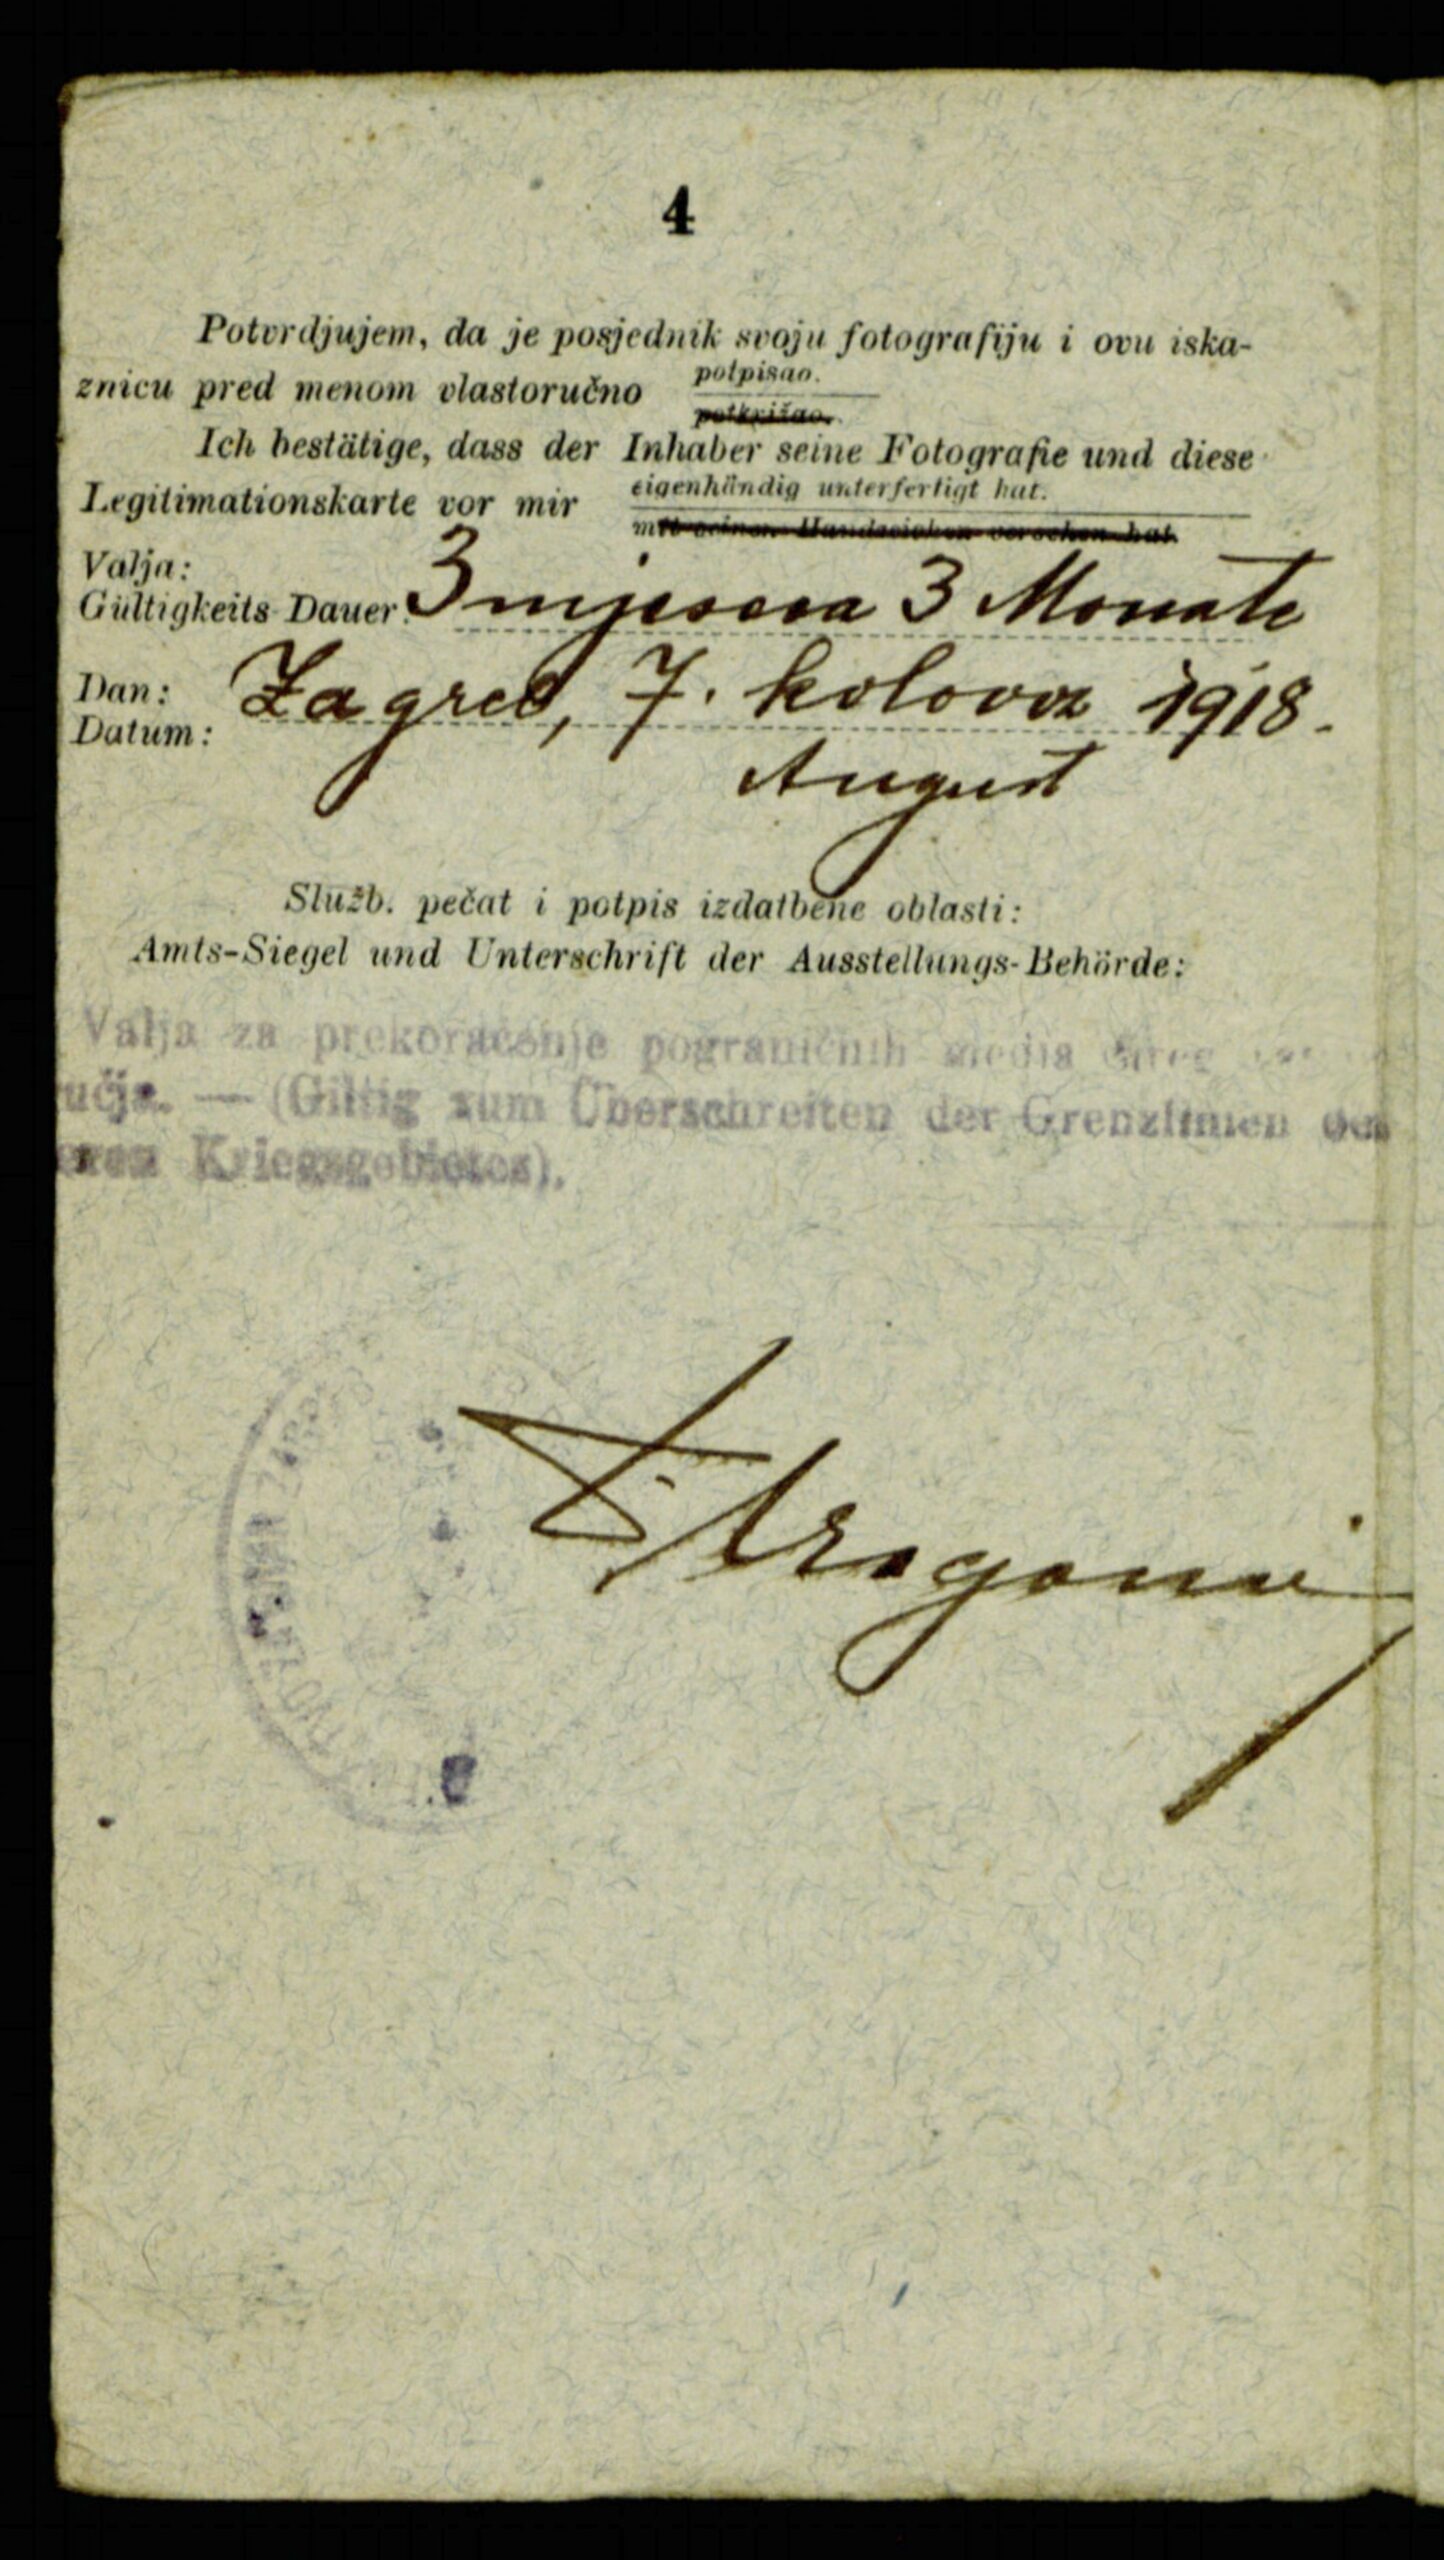 4
Potvrdjujem, da je posjednik svoju fotografiju i ovu iska-
znicu pred menom vlastoručno potpisao.
potkrižao.
Ich bestätige, dass der Inhaber seine Fotografie und diese
Legitimationskarte vor mir eigenhändig unterfertigt hat.
mit seinen Handzeichen versehen hat.
Valja:
Gültigkeits-Dauer: 3 mjeseca 3 Monate
Dan: Zagreb, 7. kolovoz 1918.
Datum:
August
Služb. pečat i potpis izdatbene oblasti:
Amts-Siegel und Unterschrift der Ausstellungs-Behörde:
Valja za prekoračenje pograničnih medja
učja. — (Giltig zum Überschreiten der Grenzlinien des
Kriegsgebietes).